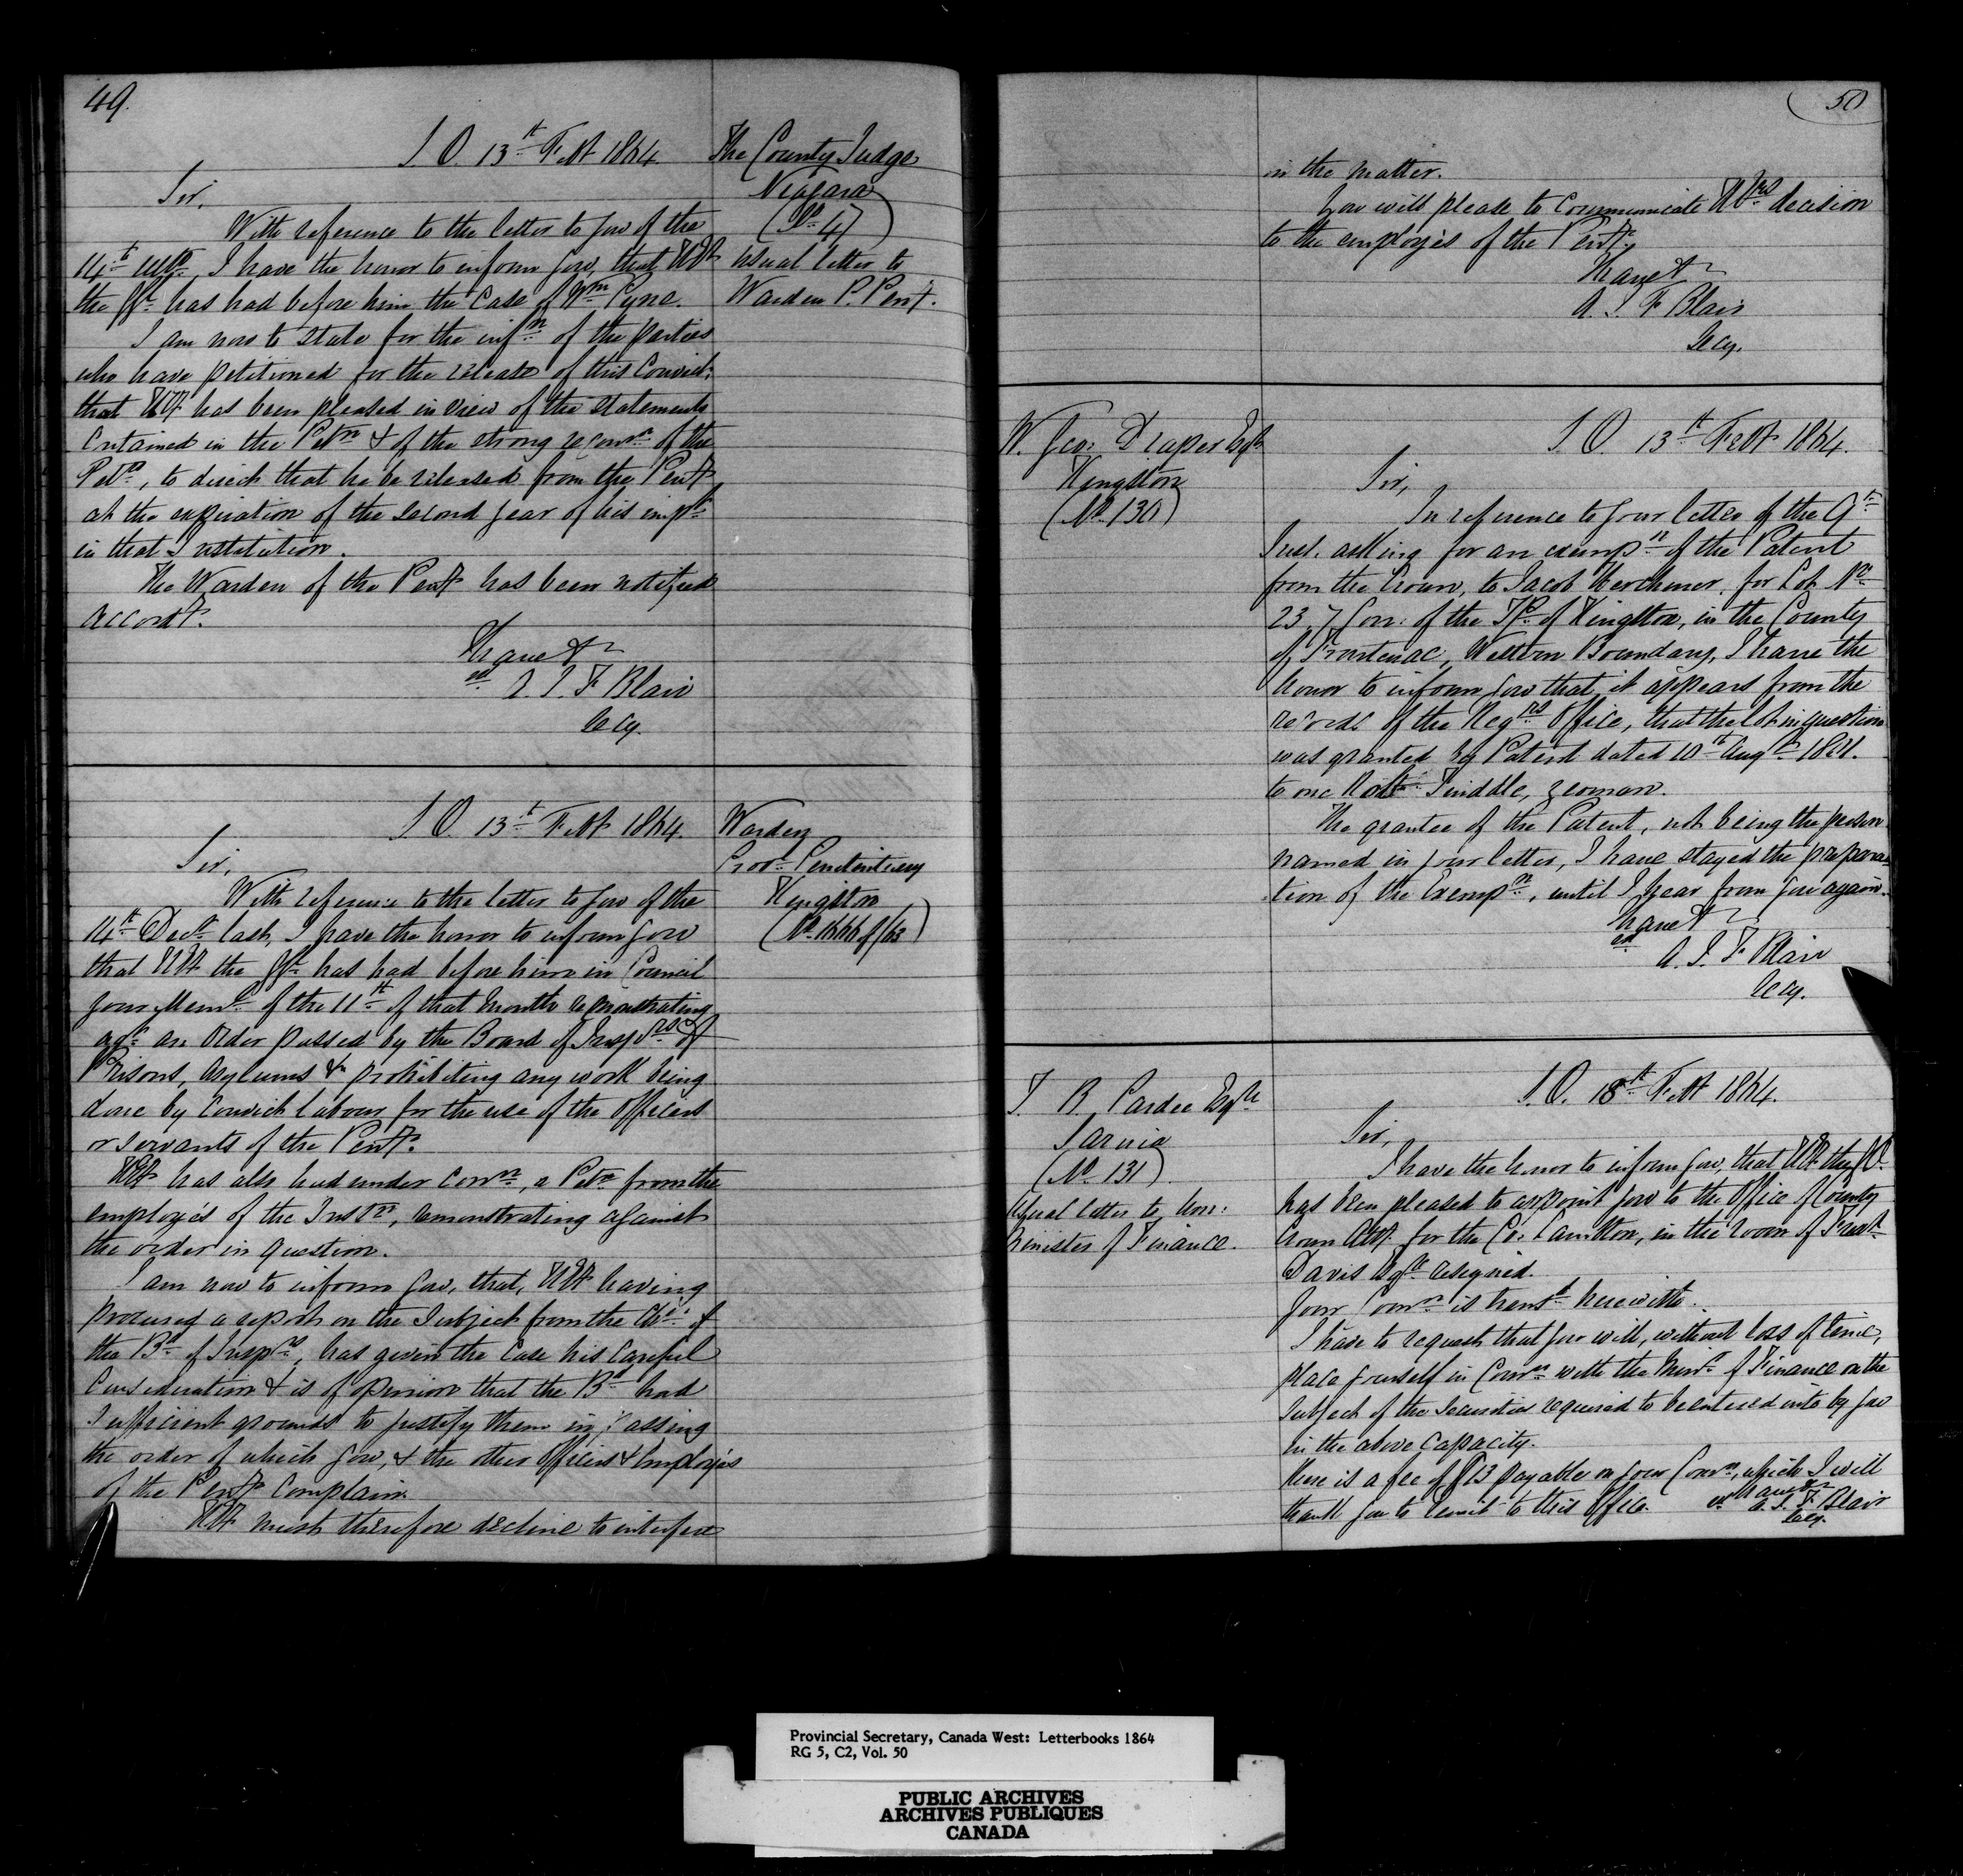 49.
S.O. 13th Feby 1864.
The County Judge
Niagara
(No 4)
usual letter to
Warden P. Pent.
Sir,
With reference to the letter to you of the
14th ulto, I have the honor to inform you, that HEy
the GG. has had before him the Case of Wm Pyne.
I am now to state for the infn of the parties
who have petitioned for the release of this Convict,
that HEy has been pleased in view of the statements
contained in the Petn & of the strong recomn of the
Petrs, to direct that he be released from the Penty
at the expiration of the second year of his impt
in that Institution.
The Warden of the Penty has been notified
accordy.
I have &c
sd A. J. F. Blair
Secy.
S.O. 13th Feby 1864
Warden
Provl Penitentiary
Kingston
(No 1666 of /63)
Sir,
With reference to the letter to you of the
14th Decr last, I have the honor to inform you
that HEy the GG. has had before him in Council
your Meml of the 11th of that month remonstrating
agt an Order passed by the Board of Inspcrs of
Prisons, Asylums &c prohibiting any work being
done by Convict labour for the use of the Officers
or servants of the Penty.
HEy has also had under conn, a Petn from the
employés of the Instn, remonstrating against
the order in question.
I am now to inform you, that, HEy having
procured a report on the Subject from the Chn of
the Bd of Inspcrs, has given the Case his careful
Consideration & is of opinion that the Bd had
sufficient grounds to justify them in passing
the order of which you, & the other Officers & Employés
of the Penty Complain.
HEy must therefore decline to interfere
50
in the matter.
You will please to communicate HEys decision
to the employés of the Penty.
I have &c
A. J. F. Blair
Secy.
W. Geo: Draper Esqr
Kingston
(No. 130)
S.O. 13th Feby 1864.
Sir,
In reference to your letter of the 9th
Inst. asking for an exempn of the Patent
from the Crown, to Jacob Herchmer, for Lot No
23, 7 Con: of the Tp. of Kingston, in the County
of Frontenac, Western Boundary, I have the
honor to inform you that it appears from the
records of the Regrs Office, that the lot in question
was granted by Patent dated 10th Augt 1801.
to one Robt Twiddle, yeoman.
The grantee of the Patent, not being the person
named in your letter, I have stayed the prepara-
tion of the Exempn, until I hear from you again.
I have &c
sd A. J. F. Blair
Secy.
T. B. Pardee Esqre
Sarnia
(No. 131)
Usual letter to Hon:
Minister of Finance.
S.O. 18th Feby 1864.
Sir,
I have the honor to inform you, that HEy the GG.
has been pleased to appoint you to the office of County
Crown Atty for the Co: Lambton, in the room of
Davis Esqre resigned.
Your Comn is transd herewith.
I have to request that you will, without loss of time,
place yourself in Comn with the Minr of Finance on the
Subject of the Securities required to be entered into by you
in the above Capacity.
There is a fee of payable on your Comn, which I will
thank you to remit to this Office.
I have &c
sd A. J. F. Blair
Secy.
Provincial Secretary, Canada West: Letterbooks 1864
RG 5, C2, Vol. 50
PUBLIC ARCHIVES
ARCHIVES PUBLIQUES
CANADA